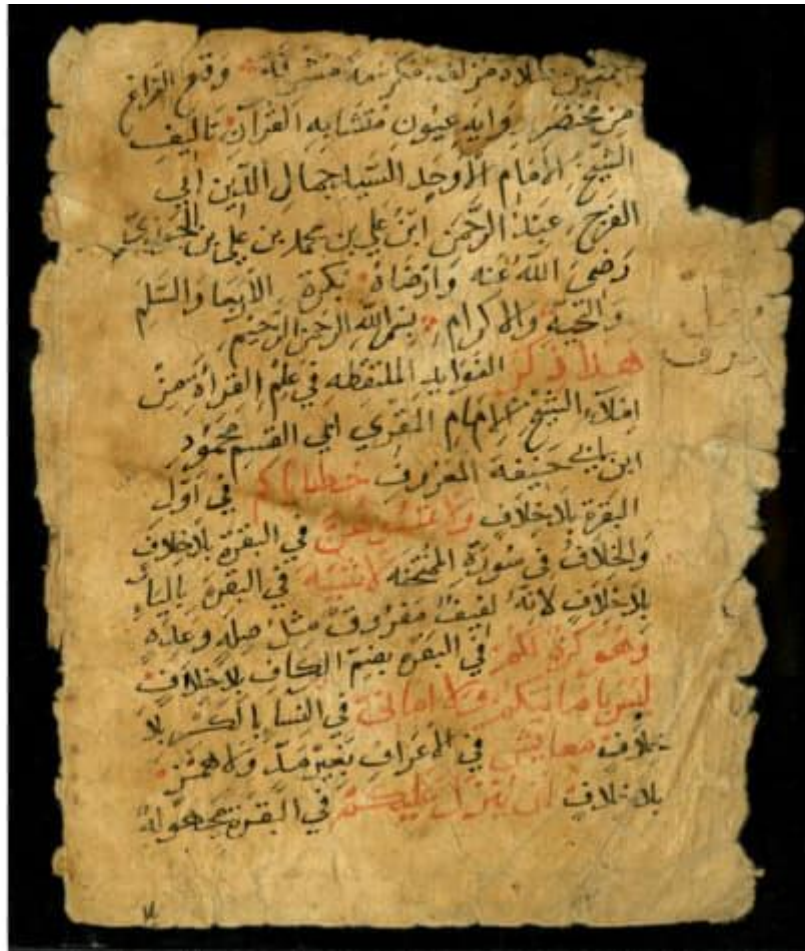 وقع الفراغ
من مختصر وايه عيون متشابه القرآن تاليف
الشيخ الامام الاوحد السيد جمال الدين ابي
الفرج عبد الرحمن ابن علي بن محمد بن علي بن الجوزي
رضي الله عنه وارضاه بكرة الاربعا والسلم
والتحية والاكرام بسم الله الرحمن الرحيم
هذا ذكر الفوايد الملتقطه في علم القراة من
املاء الشيخ الامام المقري ابي القسم محمود
ابن حنيفة المعروف خطاياكم في اول
البقرة بلا خلاف ولا تمسكوهن في البقرة بلا خلاف
والخلاف في سورة الممتحنه لا شية في البقرة بالياء
بلا خلاف لانه لفيف مفروق مثل صلة وعدة
وهو كره لكم في البقرة بضم الكاف بلا خلاف
ليس بامانيكم ولا اماني في النسا بلا
خلاف معايش في الاعراف بغير مد ولا همز
بلا خلاف ان ينزل عليكم في البقرة